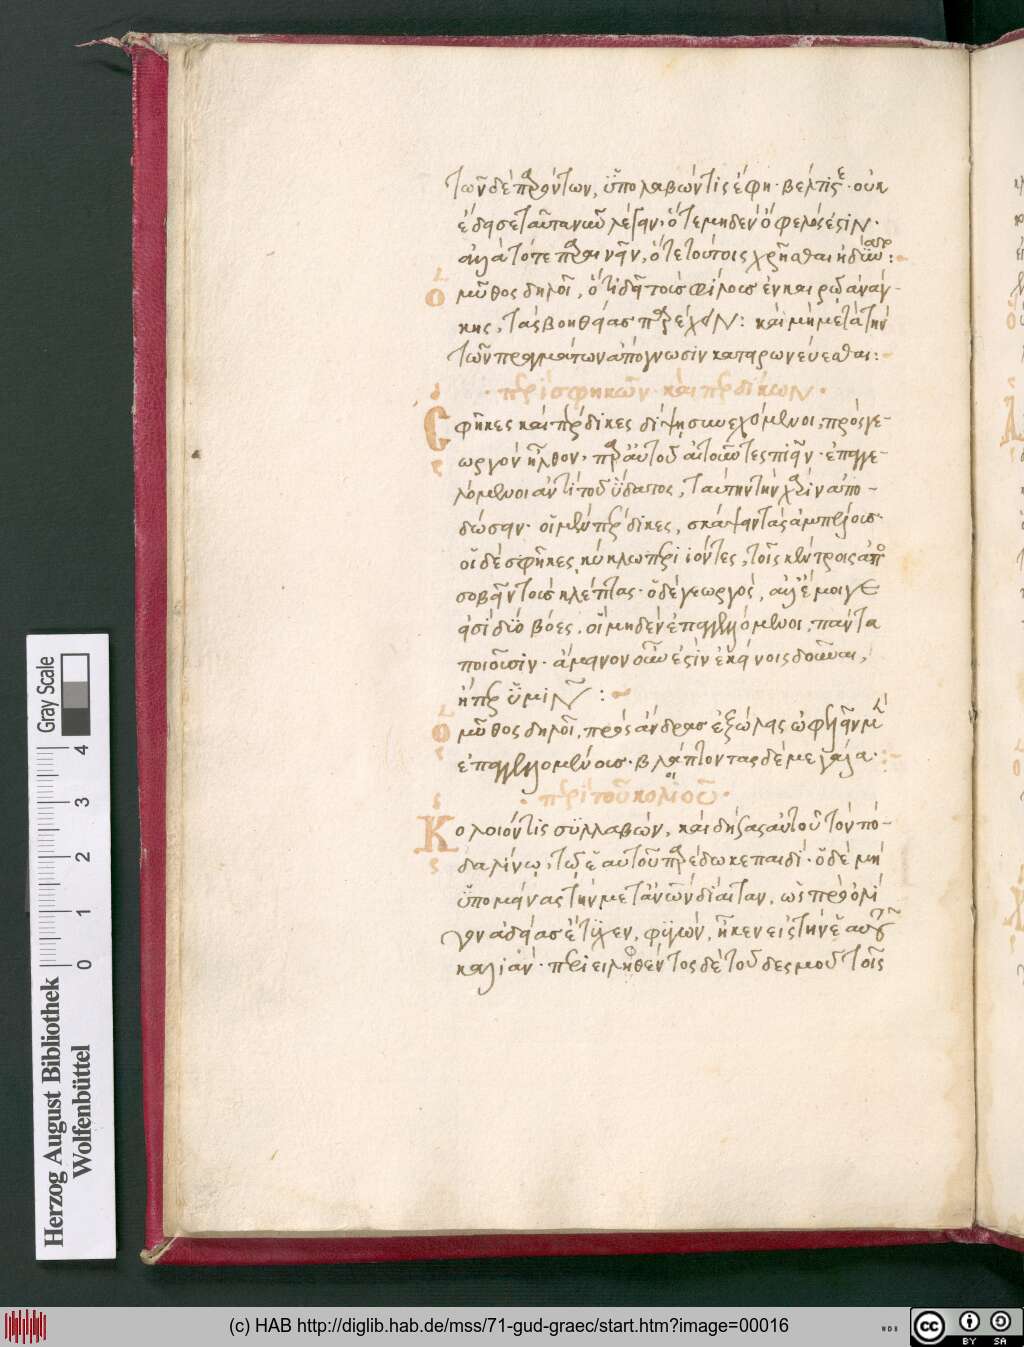 τῶν δὲ παρόντων, ὑπολαβών τις ἔφη· βέλτιστε· οὐκ
ἔδει σε ταῦτα νῦν λέγειν, ὅτε μηδὲν ὄφελός ἐστιν·
ἀλλὰ τότε παραινεῖν, ὅτε τούτοις χρῆσθαι ἠδύνω:
ὁ μῦθος δηλοῖ, ὅτι δεῖ τοῖς φίλοις ἐν καιρῷ ἀνάγ-
κης, τὰς βοηθείας παρέχειν: καὶ μὴ μετὰ τὴν
τῶν πραγμάτων ἀπόγνωσιν κατειρωνεύεσθαι:
· περὶ σφηκῶν καὶ περδίκων ·
Σφῆκες καὶ πέρδικες δίψῃ συνεχόμενοι, πρὸς γε-
ωργὸν ἦλθον· παρ' αὐτοῦ αἰτοῦντες πιεῖν· ἐπαγγε-
λόμενοι ἀντὶ τοῦ ὕδατος, ταύτην τὴν χάριν ἀπο-
δώσειν· οἱ μὲν πέρδικες, σκάψειν τὰς ἀμπέλους·
οἱ δὲ σφῆκες κύκλῳ περιϊόντες, τοῖς κέντροις ἀπο
σοβεῖν τοὺς κλέπτας· ὁ δὲ γεωργός, ἀλλ' ἔμοιγε
εἰσὶ δύο βόες, οἳ μηδὲν ἐπαγγελλόμενοι, πάντα
ποιοῦσιν· ἄμεινον οὖν ἐστὶν ἐκείνοις δοῦναι,
ἤπερ ὑμῖν :
ὁ μῦθος δηλοῖ, πρὸς ἄνδρας ἐξώλεις ὠφελεῖν μὲν
ἐπαγγελλομένους· βλάπτοντας δὲ μεγάλα·
· περὶ τοῦ κολοιοῦ ·
Κολοιόν τις συλλαβών, καὶ δήσας αὐτοῦ τὸν πό-
δα λίνῳ, τῷ ἑαυτοῦ παρέδωκε παιδί· ὁ δὲ μὴ
ὑπομείνας τὴν μετ' ἀνθρώπων δίαιταν, ὡς πρὸς ὀλί
γον ἀδείας ἔτυχεν, φυγών, ἧκεν εἰς τὴν ἑαυτοῦ
καλιάν· περιειληθέντος δὲ τοῦ δεσμοῦ τοῖς
Herzog August Bibliothek
Wolfenbüttel
Gray Scale
0 1 2 3 4
(c) HAB http://diglib.hab.de/mss/71-gud-graec/start.htm?image=00016
WDB
cc BY SA